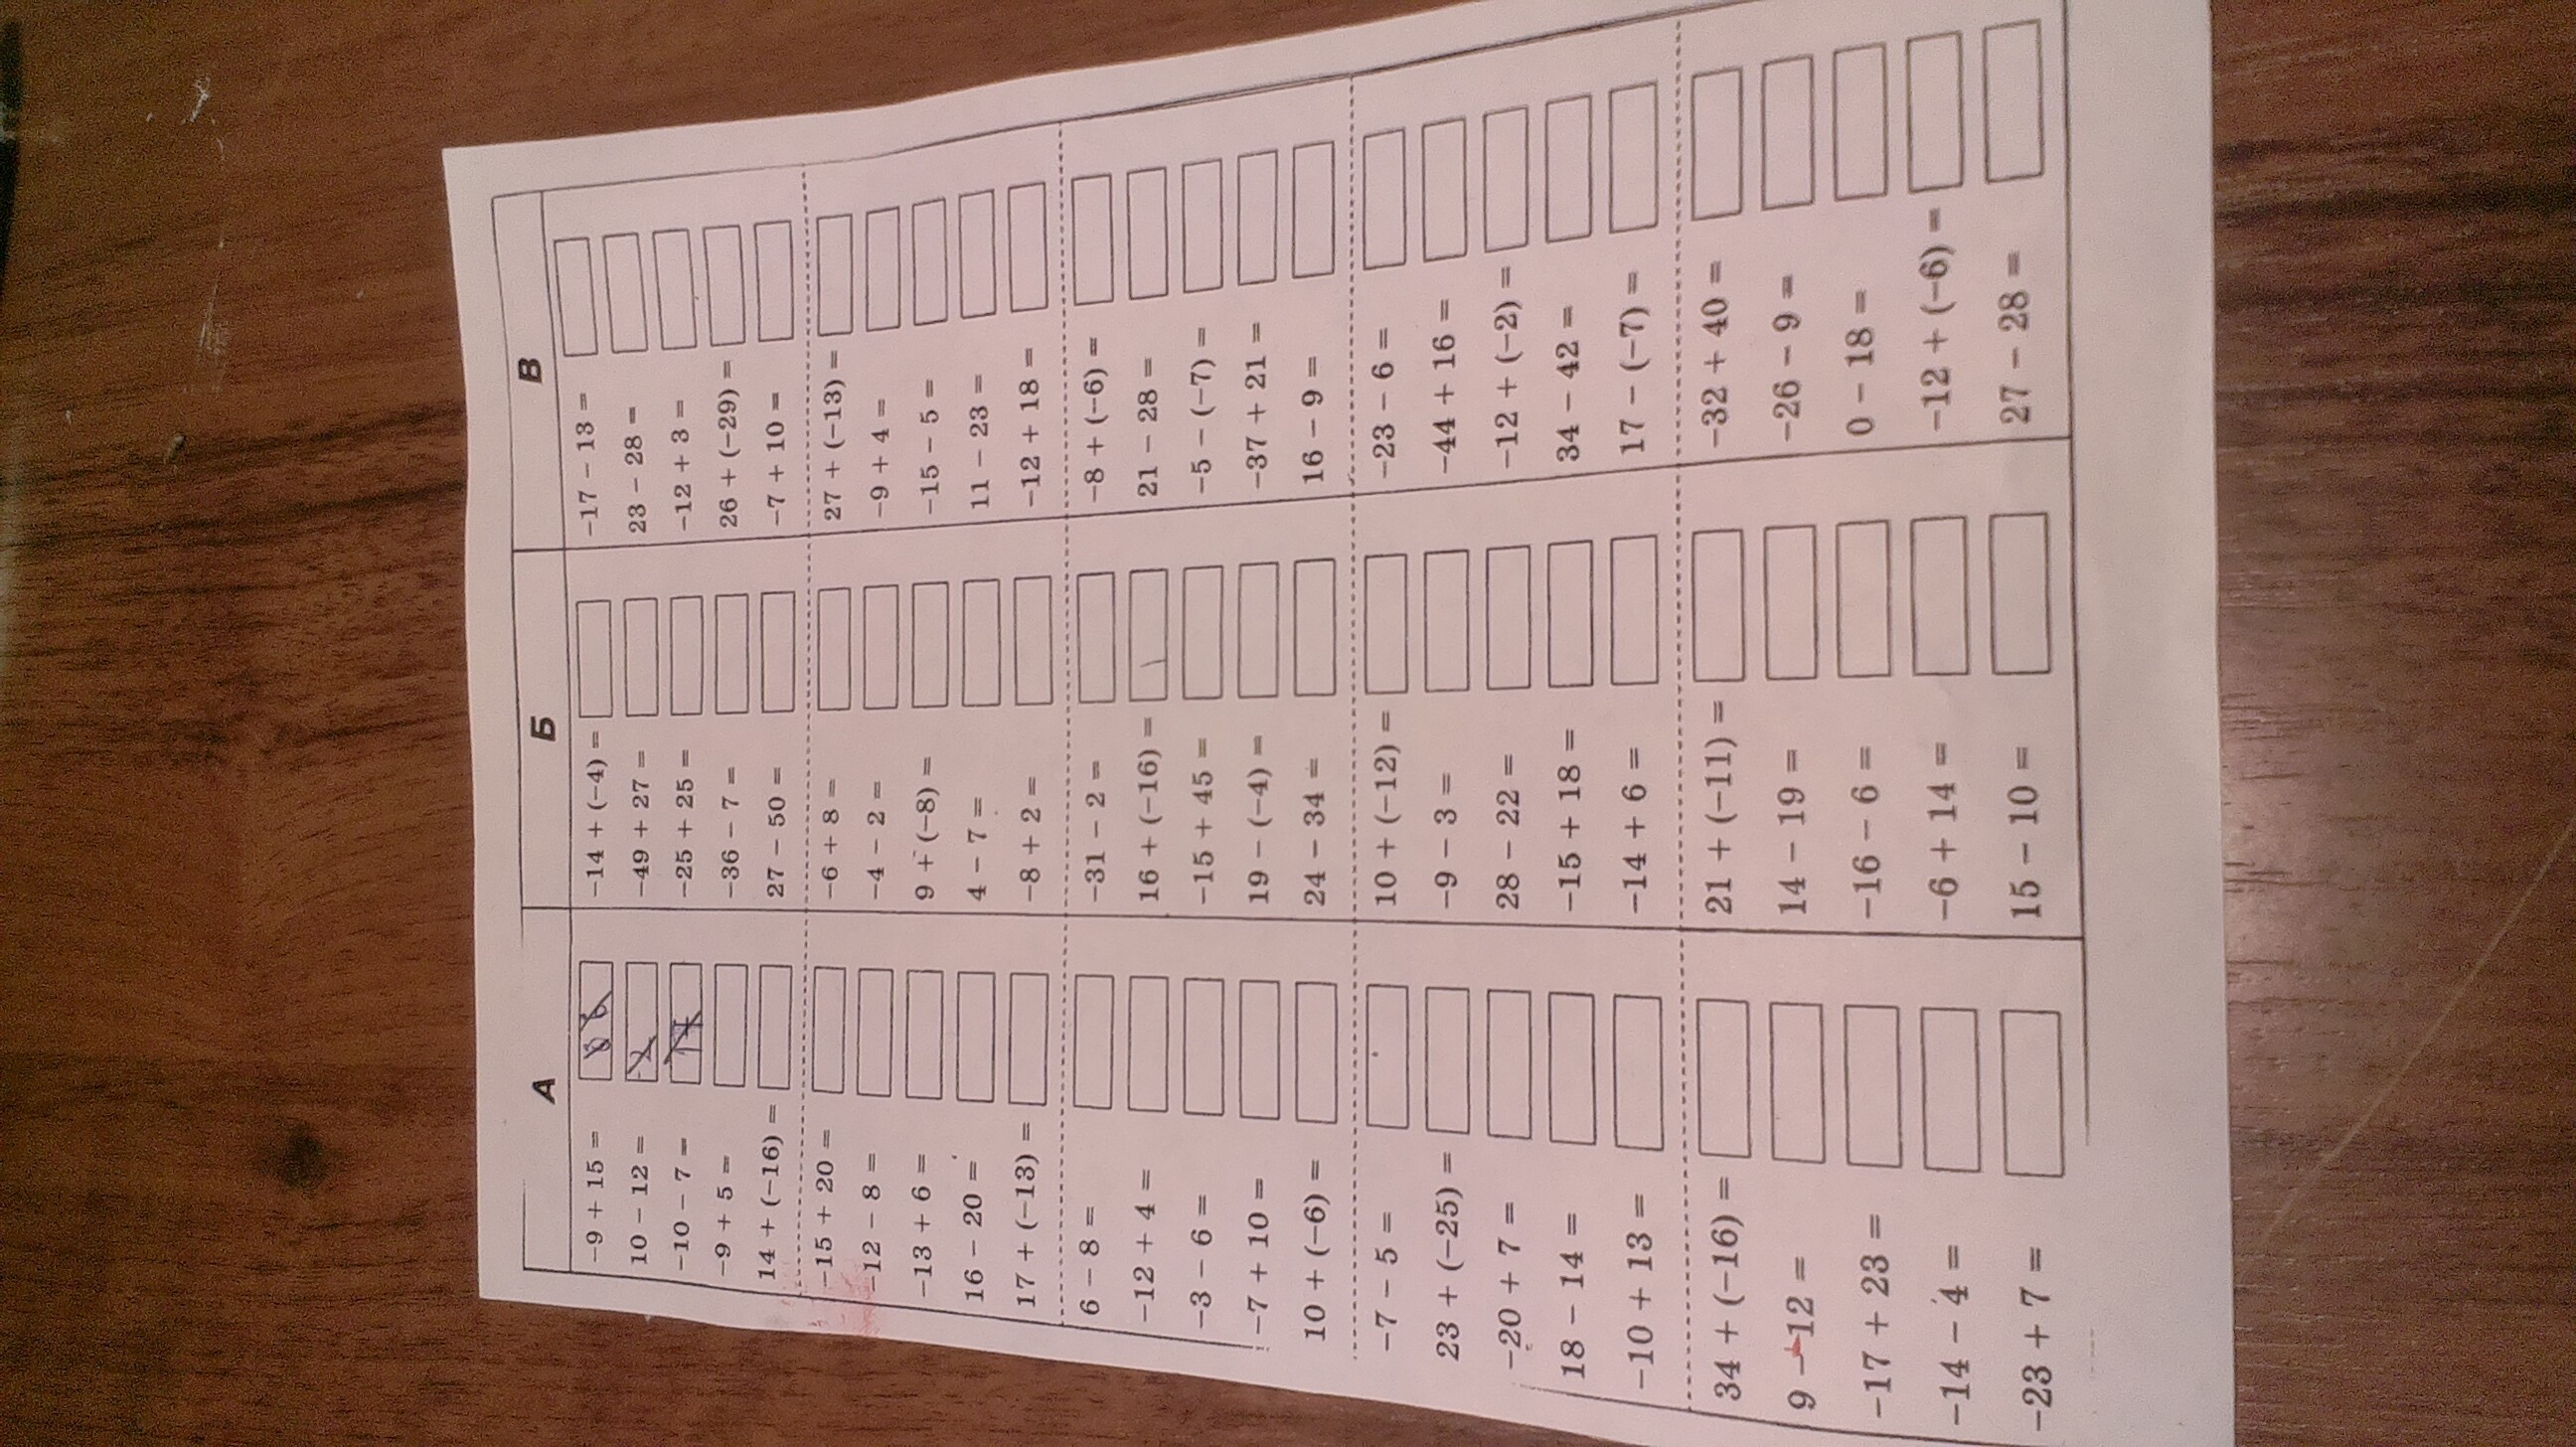 А Б В
-9 + 15 = -14 + (-4) = -17 - 13 =
10 - 12 = -49 + 27 = 23 - 28 =
-10 - 7 = -25 + 25 = -12 + 3 =
-9 + 5 = -36 - 7 = 26 + (-29) =
14 + (-16) = 27 - 50 = -7 + 10 =
-15 + 20 = -6 + 8 = 27 + (-13) =
-12 - 8 = -4 - 2 = -9 + 4 =
-13 + 6 = 9 + (-8) = -15 - 5 =
16 - 20 = 4 - 7 = 11 - 23 =
17 + (-13) = -8 + 2 = -12 + 18 =
6 - 8 = -31 - 2 = -8 + (-6) =
-12 + 4 = 16 + (-16) = 21 - 28 =
-3 - 6 = -15 + 45 = -5 - (-7) =
-7 + 10 = 19 - (-4) = -37 + 21 =
10 + (-6) = 24 - 34 = 16 - 9 =
-7 - 5 = 10 + (-12) = -23 - 6 =
23 + (-25) = -9 - 3 = -44 + 16 =
-20 + 7 = 28 - 22 = -12 + (-2) =
18 - 14 = -15 + 18 = 34 - 42 =
-10 + 13 = -14 + 6 = 17 - (-7) =
34 + (-16) = 21 + (-11) = -32 + 40 =
9 - 12 = 14 - 19 = -26 - 9 =
-17 + 23 = -16 - 6 = 0 - 18 =
-14 - 4 = -6 + 14 = -12 + (-6) =
-23 + 7 = 15 - 10 = 27 - 28 =